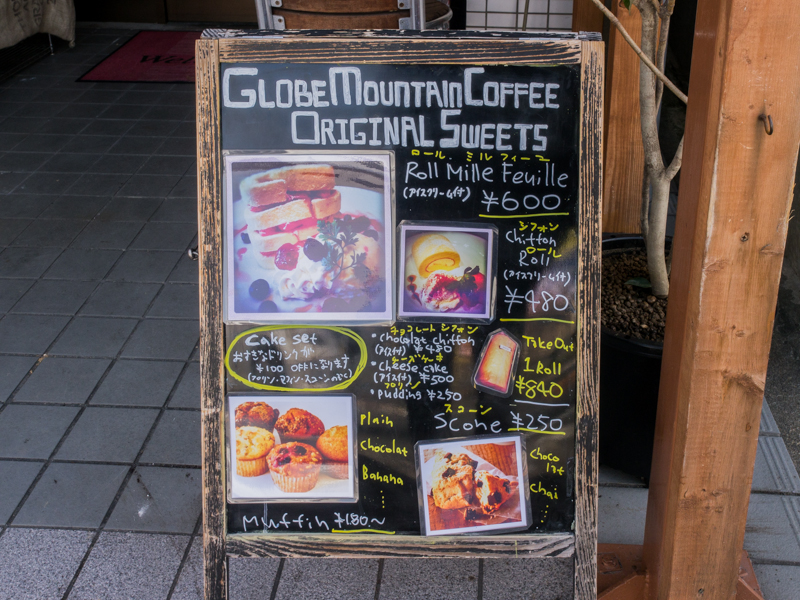 GLOBE MOUNTAIN COFFEE
ORIGINAL SWEETS
ロール ミルフィーユ
Roll Mille Feuille
(アイスクリーム付)
¥600
シフォン
Chiffon
ロール
Roll
(アイスクリーム付)
¥480
Cake set
お好きなドリンクが
¥100 OFFになります
チョコレートシフォン
・chocolat chiffon
(アイス付) ¥480
チーズケーキ
・cheese cake
(アイス付) ¥500
プリン
・Pudding ¥250
Take Out
1 Roll
¥840
スコーン
Scone ¥250
Plain
Chocolat
Banana
Choco
chai
Muffin ¥180~